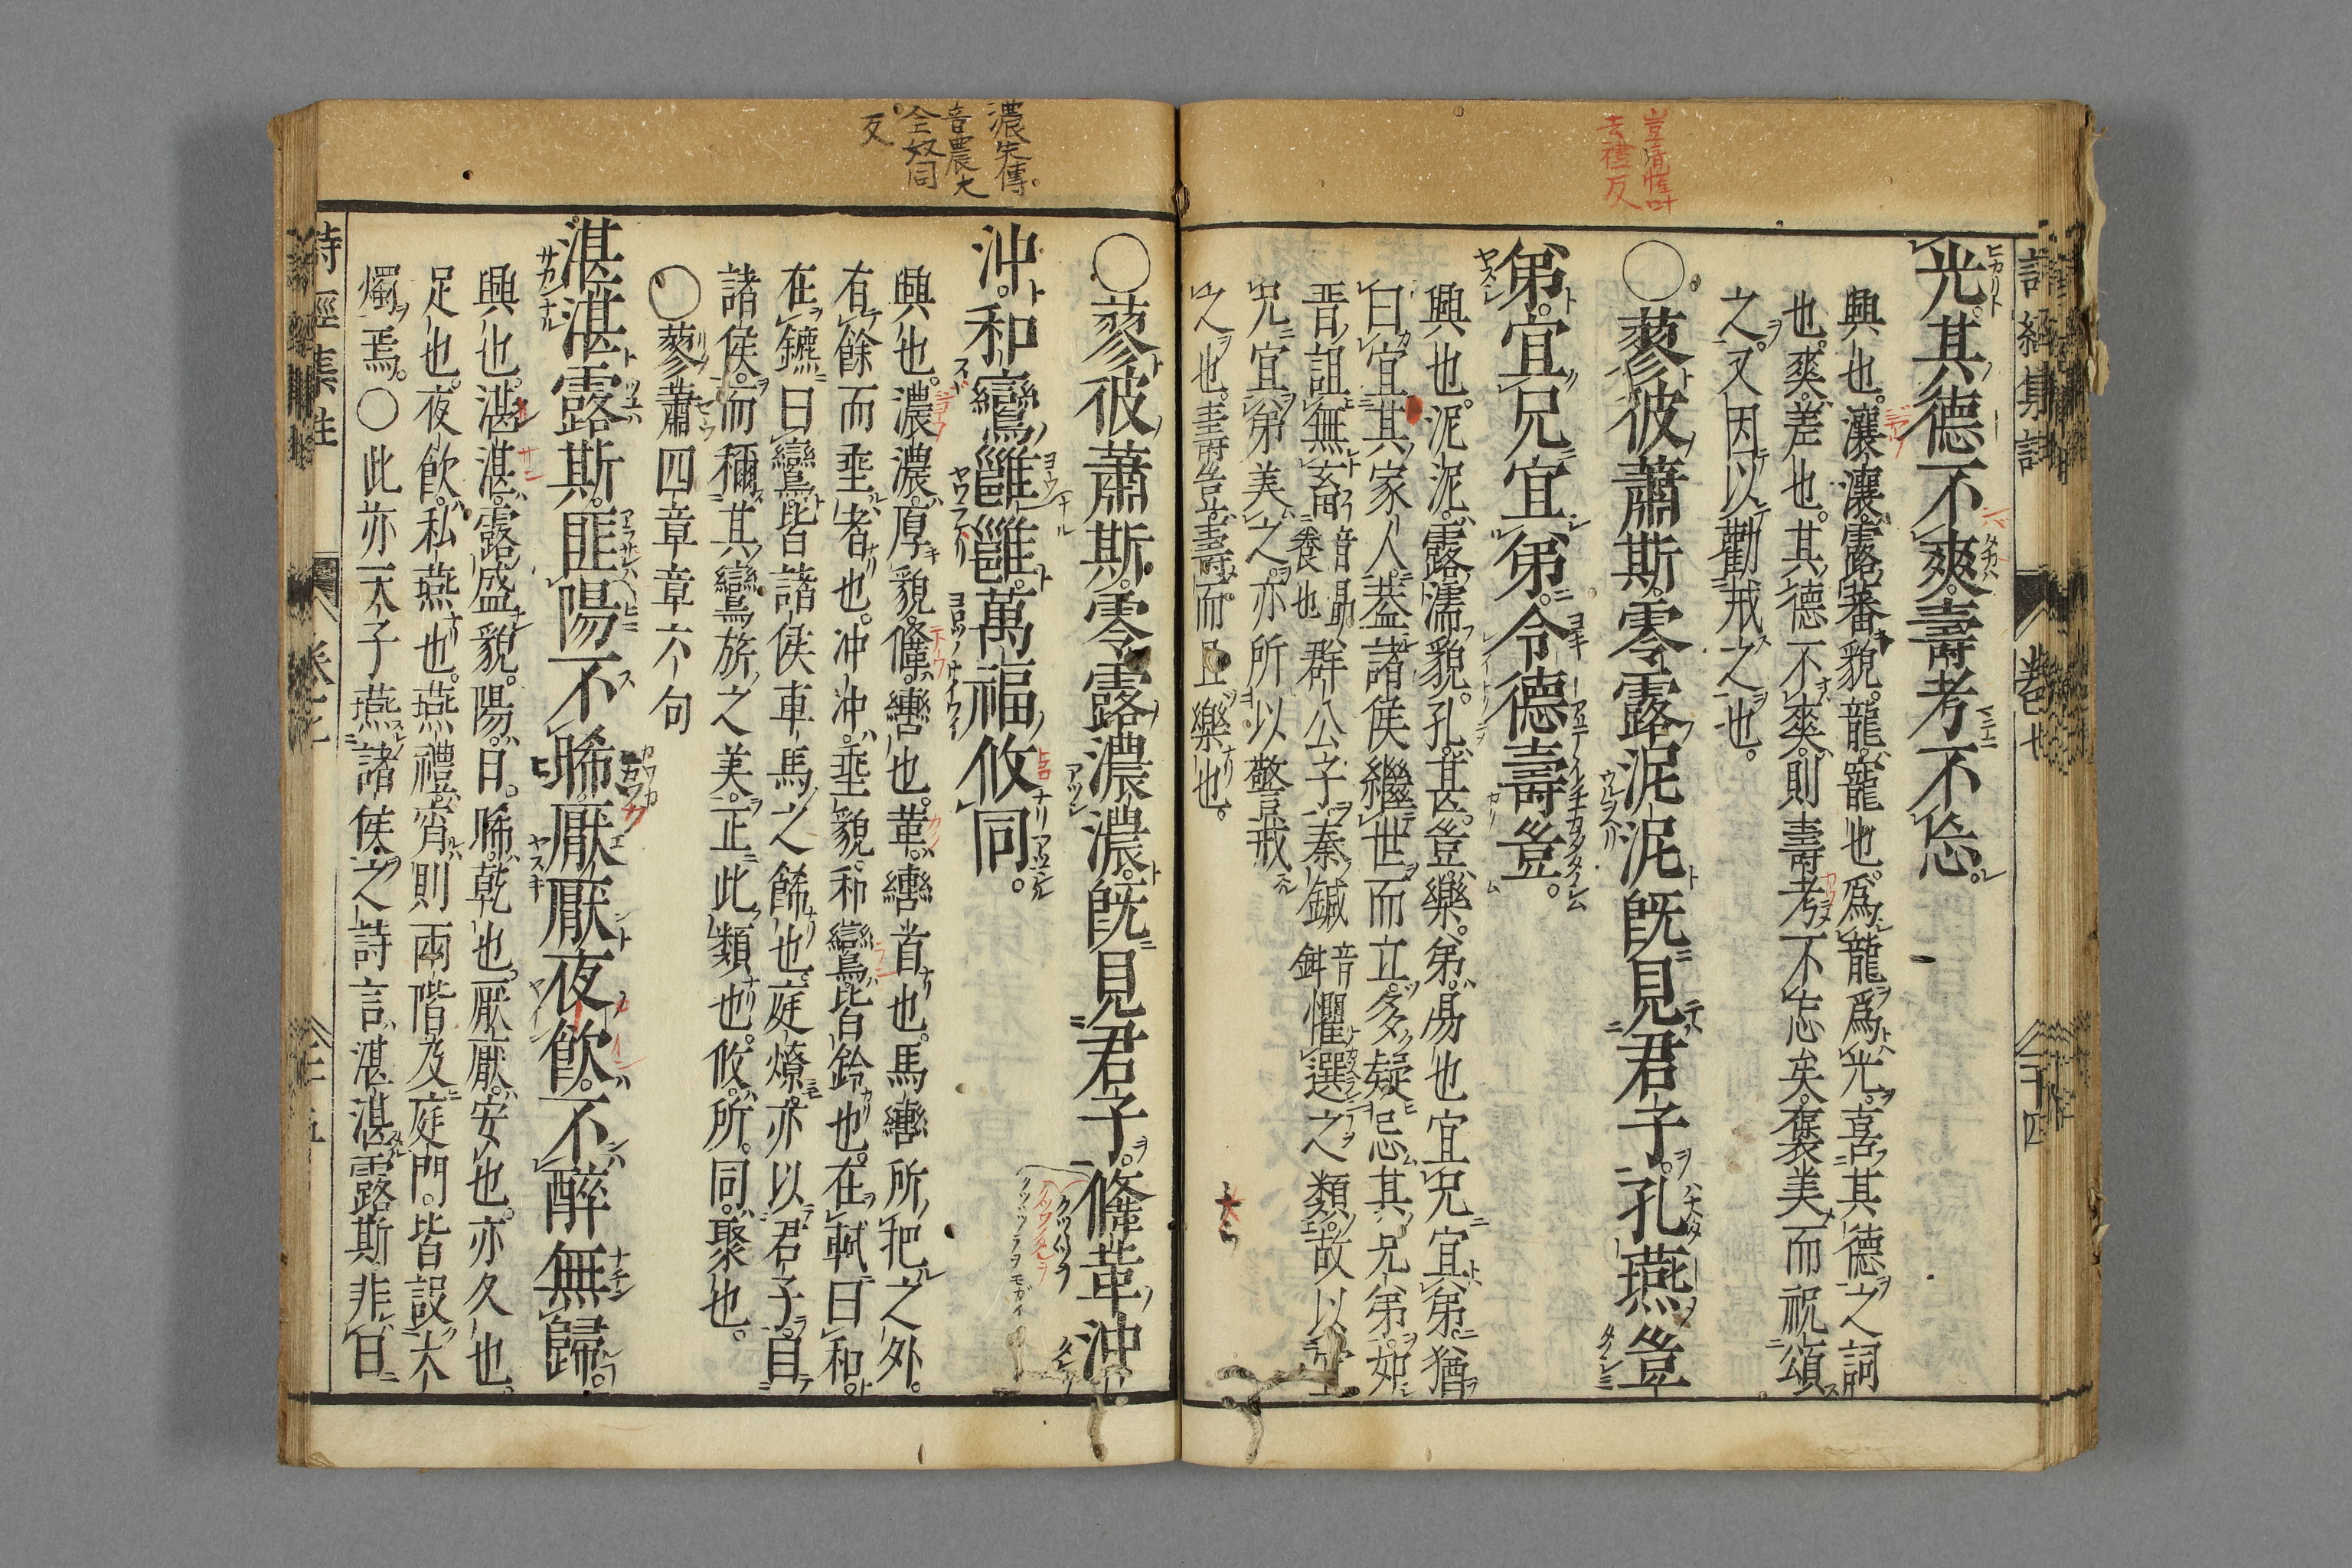 豈音愷叶
去禮反
光其德不爽壽考不忘
興也瀼瀼露蕃貌龍寵也爲龍爲光喜其德之詞
也爽差也其德不爽則壽考不忘矣褒美而祝頌
之又因以勸戒之也
○蓼彼蕭斯零露泥泥旣見君子孔燕豈
弟宜兄宜弟令德壽豈
興也泥泥露濡貌孔甚豈樂弟易也宜兄宜弟猶
曰宜其家人蓋諸侯繼世而立多疑忌其兄弟如
晉詛無畜音勗養也群公子秦鍼音鉗懼選之類故以宜
兄宜弟美之亦所以警戒
之也壽豈壽而且樂也
詩經集註
卷七
二十四
濃朱傳
音農大
全奴同
反
○蓼彼蕭斯零露濃濃旣見君子鞗革沖
沖和鸞雝雝萬福攸同
興也濃濃厚貌鞗轡也革轡首也馬轡所把之外
有餘而垂者也沖沖垂貌和鸞皆鈴也在軾曰和
在鑣曰鸞皆諸侯車馬之飾也庭燎亦以君子目
諸侯而稱其鸞旂之美正此類也攸所同聚也
○蓼蕭四章章六句
湛湛露斯匪陽不晞厭厭夜飮不醉無歸
興也湛湛露盛貌陽日晞乾也厭厭安也亦久也
足也夜飮私燕也燕禮宵則兩階及庭門皆設大
燭焉○此亦天子燕諸侯之詩言湛湛露斯非日
詩經集註